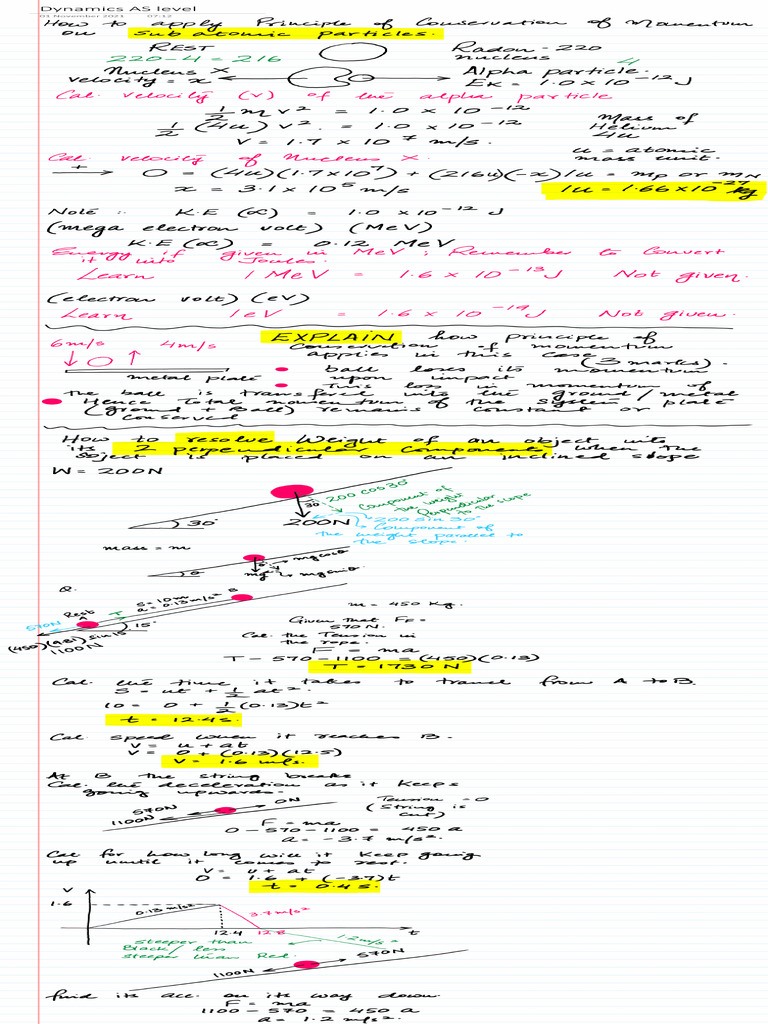 Dynamics AS level
03 November 2021 07:12
How to apply Principle of Conservation of Momentum
on Sub atomic particles.
REST
Radon - 220
nucleus
220-4 = 216
4
Nucleus X
velocity = x
Alpha particle.
EK = 1.0 x 10^-12 J
Cal. velocity (v) of the alpha particle
1/2 m v² = 1.0 x 10^-12
1/2 (4u) v² = 1.0 x 10^-12
V = 1.7 x 10^7 m/s.
Mass of
Helium
4u
u = atomic
mass unit.
Cal. velocity of Nucleus X.
+ → 0 = (4u)(1.7x10^7) + (216u)(-x)
1u = mp or mN
x = 3.1 x 10^5 m/s
1u = 1.66 x 10^-27 kg
Note :- K.E (α) = 1.0 x 10^-12 J
(mega electron volt) (MeV)
K.E (α) = 0.12 MeV
Energy if given in MeV; Remember to Convert
it into Joules.
Learn 1 MeV = 1.6 x 10^-13 J Not given.
(electron volt) (eV)
Learn 1eV = 1.6 x 10^-19 J Not given.
EXPLAIN how principle of
Conservation of momentum
applies in this case
(3 marks).
6m/s 4m/s
metal plate
ball loses its momentum
upon impact
This loss in momentum of
the ball is transfered into the ground/metal plate
Hence Total momentum of the system
(ground + Ball) remains constant or
conserved
How to resolve Weight of an object into
its 2 perpendicular Components when the
object is placed on an inclined slope
W = 200N
30°
30
200N
200 cos30°
Component of
the weight
Perpendicular
to the slope
200 Sin 30°
Component of
the weight parallel to
the slope.
mass = m
θ
θ
mg
mgcosθ
mgsinθ
Q.
S = 10m
a = 0.13m/s²
B
Rest
A
T
570N
15°
(450)(9.81) sin 15°
1100N
m = 450 Kg.
Given that FF =
570 N.
Cal. the Tension in
the rope.
F = ma
T - 570 - 1100 = (450)(0.13)
T = 1730 N
Cal. the time it takes to travel from A to B.
S = ut + 1/2 at².
10 = 0 + 1/2 (0.13)t²
t = 12.4s.
Cal. speed when it reaches B.
V = u + at
V = 0 + (0.13)(12.5)
V = 1.6 m/s.
At B the string breaks
Cal. the deceleration as it keeps
going upwards.
570N
1100N
0N
Tension = 0
(String is
cut)
F = ma
0 - 570 - 1100 = 450 a
a = -3.7 m/s².
Cal for how long will it keep going
up until it comes to rest.
V = u + at
0 = 1.6 + (-3.7)t
t = 0.4s.
V
1.6
0.13 m/s²
3.7 m/s²
12.4
12.8
t
1.2 m/s²
steeper than
Black/less
steeper than Red.
1100N
570N
find its acc. on its way down.
F = ma
1100 - 570 = 450 a
a = 1.2 m/s².